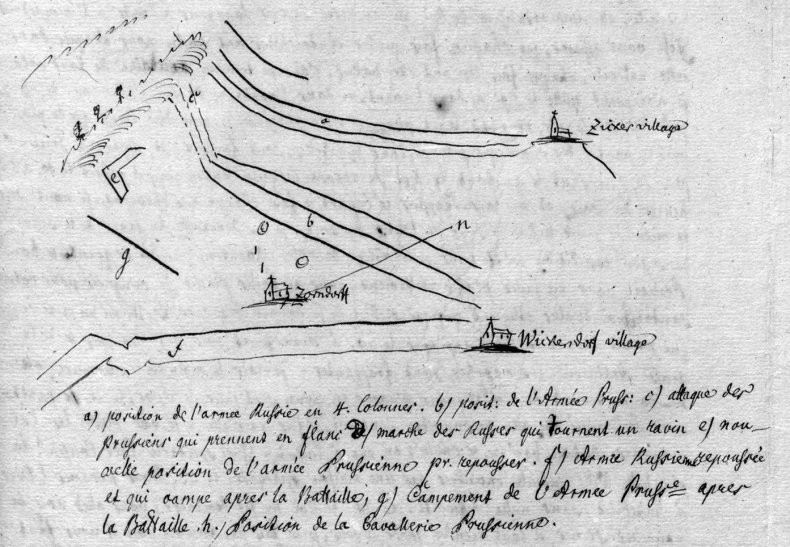 a
Zicker village
d
e
b
n
g
Zorndorff
Wickersdorf village
f
a) position de l'armee Russie en 4. Colonnes. b) posit: de l'Armée Pruss: c) attaque des
Prussiens qui prennent en flanc d) marche des Russes qui tournent un ravin e) nou-
velle position de l'armée Prussienne pr. repousser. f) Armée Russienne repoussée
et qui campe apres la Battaille, g) Campement de l'Armée Prusse apres
la Battaille. h./ Position de la Cavallerie Prussienne.